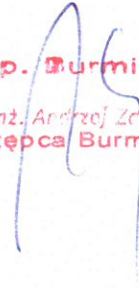 p. Burmi
inż. Andrzej Zo
tępca Burm